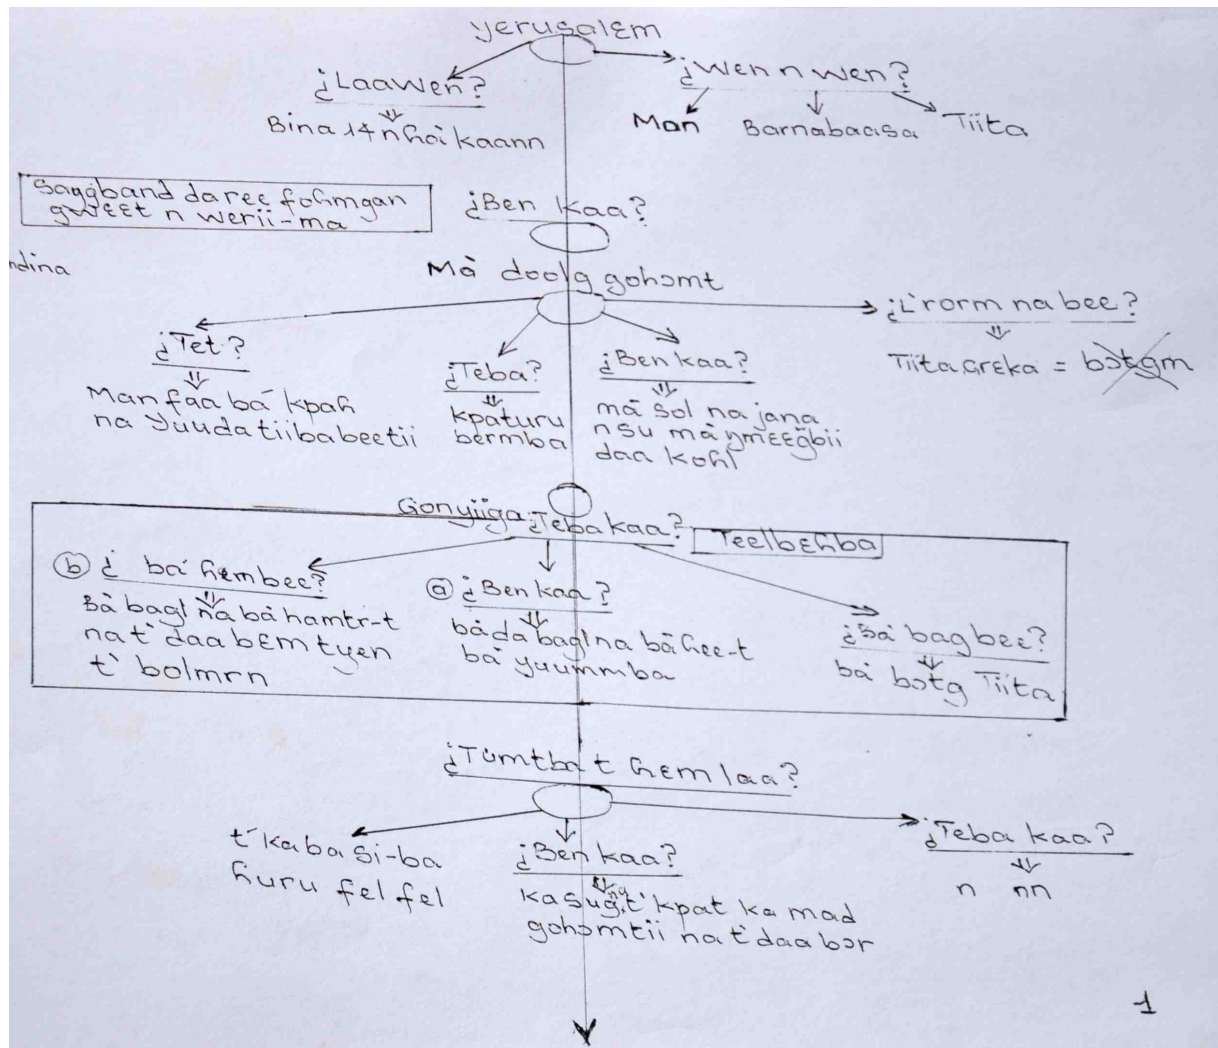 Yerusalɛm
¿Laawen?
¿Wen n wen?
Bina 14 ñhoi kaann
Man Barnabaasa Tiita
Saŋgband daree foɦmgan
gwɛɛt n werii-ma
¿Ben kaa?
ndina
Mà doolg gohɔmt
¿L'rorm na bee?
¿Tet?
Tiita grɛka = bɔtgm
¿Teba?
¿Ben kaa?
Man faa bá kpaɦ
na yuudatiibabeetii
kpaturu
bermba
má sol na jana
n su má ŋmɛɛgbii
daa kohl
Gonyiiga ¿Teba kaa?
Teelbɛɦba
b ¿ bá ɦɛm bee?
a ¿Ben kaa?
Bà bagl na bà hamtr-t
na t' daa bɛm tyen
t' bolmrn
bà da bagl na bà ɦee-t
bá yuummba
¿Bà bag bee?
bà bɔtg Tiita
¿Tùmtba t ɦɛm laa?
t' kaba si-ba
ɦuru fel fel
¿Ben kaa?
ka sug na t' kpat ka mad
gohɔmtii na t' daa bɔr
¿Teba kaa?
n nn
1